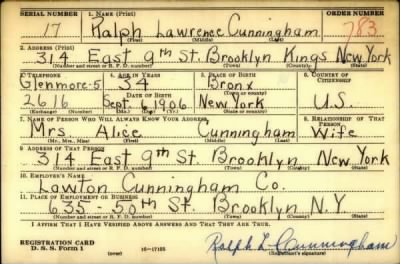 SERIAL NUMBER 1. NAME (Print) ORDER NUMBER
17 Ralph Lawrence Cunningham 783
(First) (Middle) (Last)
2. ADDRESS (Print)
314 East 9th St. Brooklyn Kings New York
(Number and street or R. F. D. number) (Town) (County) (State)
3. TELEPHONE 4. AGE IN YEARS 5. PLACE OF BIRTH 6. COUNTRY OF CITIZENSHIP
Glenmore-5 34 Bronx
DATE OF BIRTH (Town or county)
2616 Sept. 6, 1906 New York U.S.
(Exchange) (Number) (Mo.) (Day) (Yr.) (State or country)
7. NAME OF PERSON WHO WILL ALWAYS KNOW YOUR ADDRESS 8. RELATIONSHIP OF THAT PERSON
Mrs. Alice Cunningham Wife
(Mr., Mrs., Miss) (First) (Middle) (Last)
9. ADDRESS OF THAT PERSON
314 East 9th St. Brooklyn New York
(Number and street or R. F. D. number) (Town) (County) (State)
10. EMPLOYER'S NAME
Lawton Cunningham Co.
11. PLACE OF EMPLOYMENT OR BUSINESS
635-50th St. Brooklyn N.Y.
(Number and street or R. F. D. number) (Town) (County) (State)
I AFFIRM THAT I HAVE VERIFIED ABOVE ANSWERS AND THAT THEY ARE TRUE.
REGISTRATION CARD
D. S. S. Form 1 16-17105 Ralph L Cunningham
(Registrant's signature)